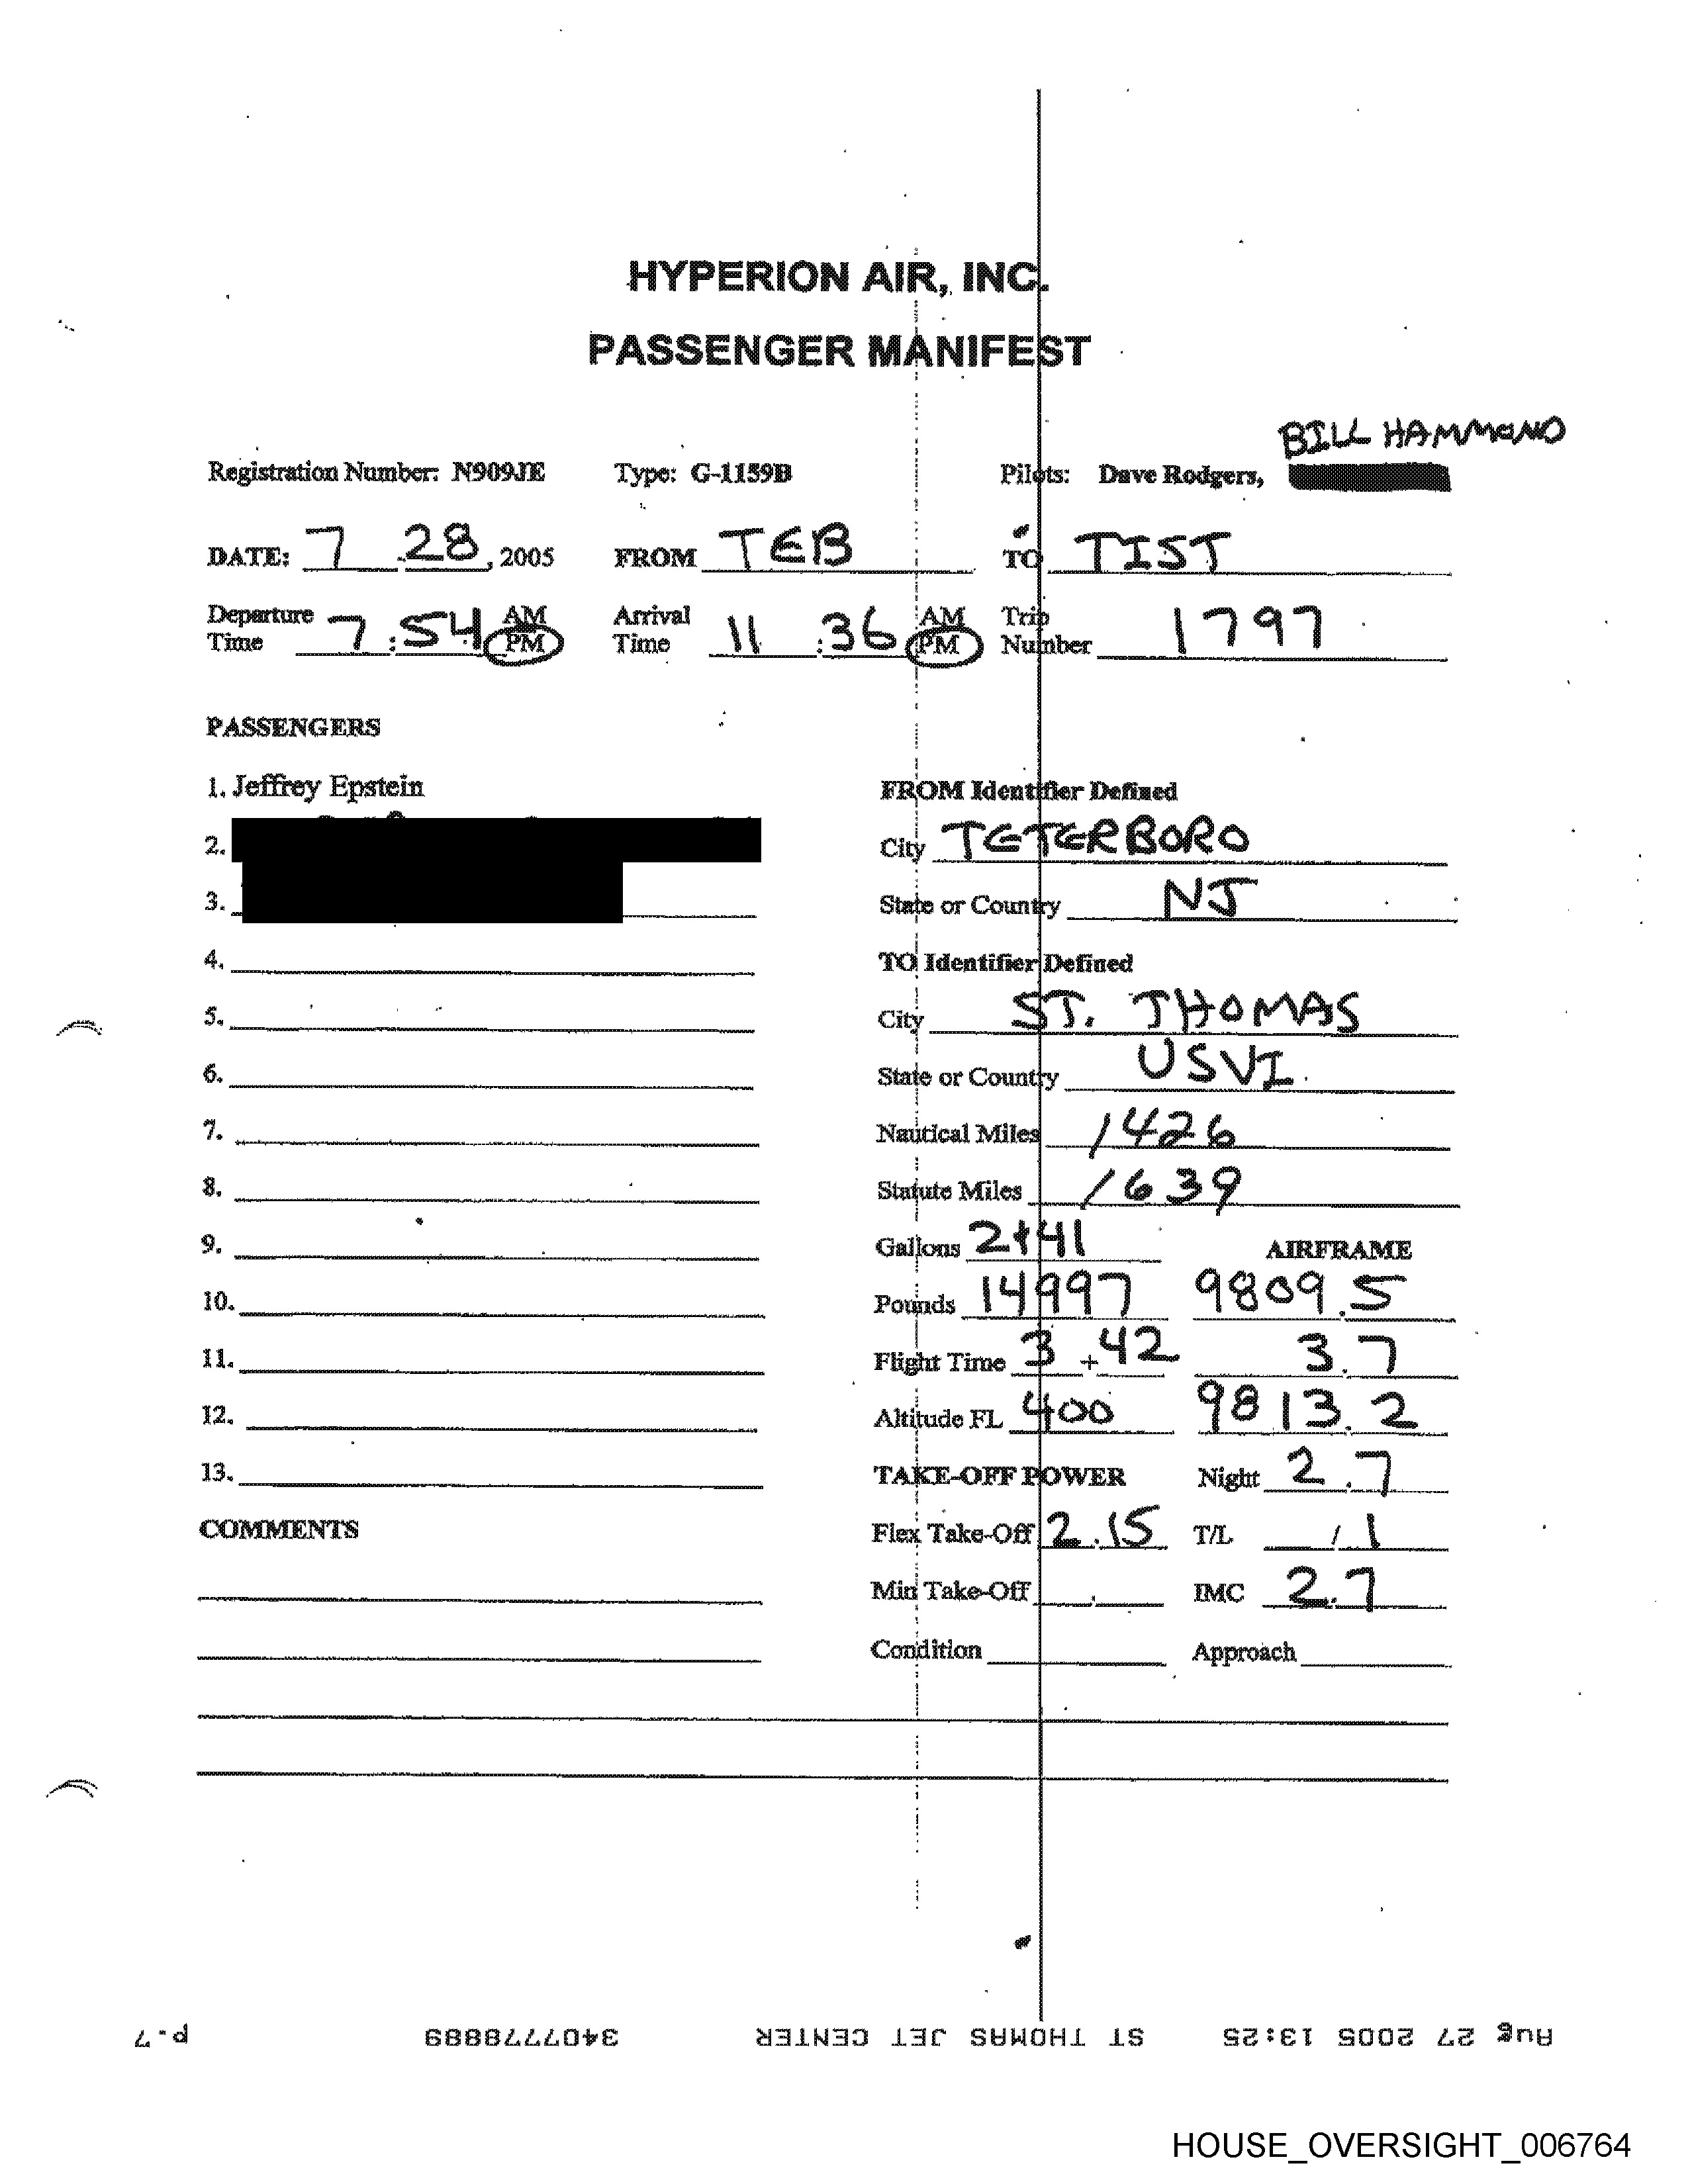 HYPERION AIR, INC.
PASSENGER MANIFEST
BILL HAMMOND
Registration Number: N909JE Type: G-1159B Pilots: Dave Rodgers,
DATE: 7 28, 2005 FROM TEB TO TIST
Departure Time 7:54 AM PM Arrival Time 11:36 AM PM Trip Number 1797
PASSENGERS
1. Jeffrey Epstein FROM Identifier Defined
2. City TETERBORO
3. State or Country NJ
4. TO Identifier Defined
5. City ST. THOMAS
6. State or Country USVI
7. Nautical Miles 1426
8. Statute Miles 1639
9. Gallons 2141 AIRFRAME
10. Pounds 14997 9809.5
11. Flight Time 3 + 42 3.7
12. Altitude FL 400 9813.2
13. TAKE-OFF POWER Night 2.7
COMMENTS Flex Take-Off 2.15 T/L / 1
Min Take-Off . IMC 2.7
Condition Approach
Aug 27 2005 13:25 ST THOMAS JET CENTER 3407778889 p.7
HOUSE_OVERSIGHT_006764